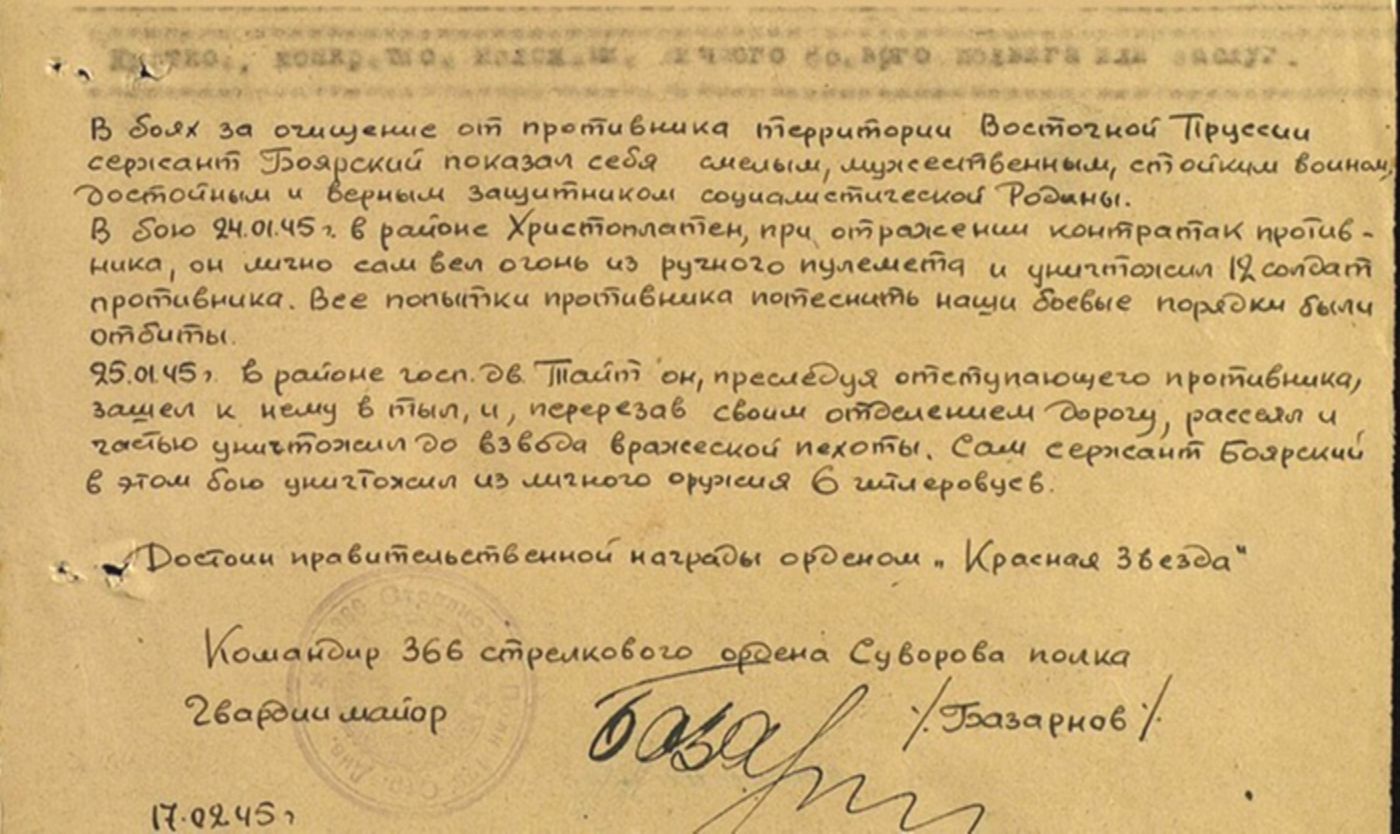 личного боевого подвига или заслуг.
В боях за очищение от противника территории Восточной Пруссии
сержант Боярский показал себя смелым, мужественным, стойким воином,
достойным и верным защитником социалистической Родины.
В бою 24.01.45 г. в районе Христоплатен, при отражении контратак против-
ника, он лично сам вел огонь из ручного пулемета и уничтожил 12 солдат
противника. Все попытки противника потеснить наши боевые порядки были
отбиты.
25.01.45 г. в районе госп. дв. Тайт он, преследуя отступающего противника,
зашел к нему в тыл, и, перерезав своим отделением дорогу, рассеял и
частью уничтожил до взвода вражеской пехоты. Сам сержант Боярский
в этом бою уничтожил из личного оружия 6 гитлеровцев.
Достоин правительственной награды орденом „Красная Звезда"
Командир 366 стрелкового ордена Суворова полка
Гвардии майор /Базарнов/
17.02.45 г